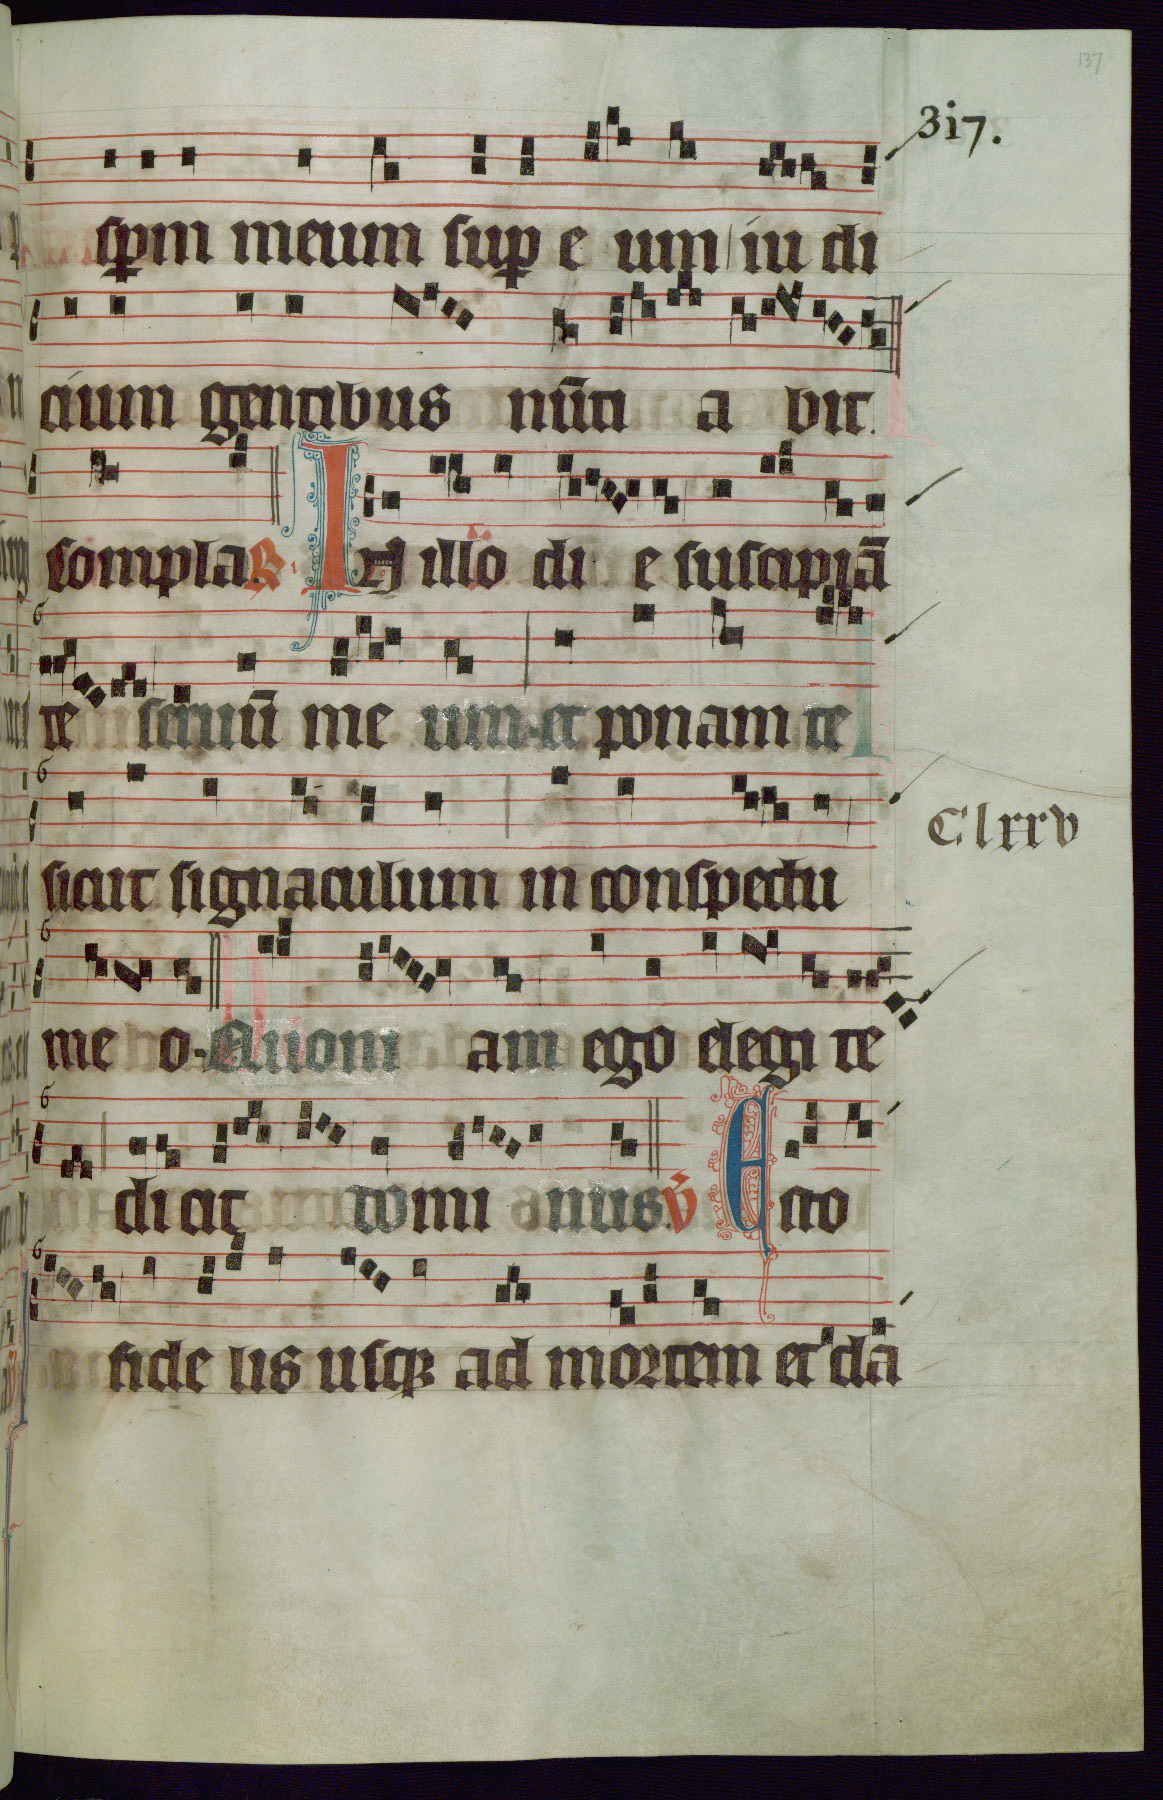 137
317.
spm meum sup e um iu di
cium gentibus nūti a bit.
compla. R. In illo di e suscipiā
te seruū me um. et ponam te
sicut signaculum in conspectu
Clxxv
me o. Quoni am ego elegi te
dicit domi nus. v̄ Esto
fide lis usq ad mortem et da